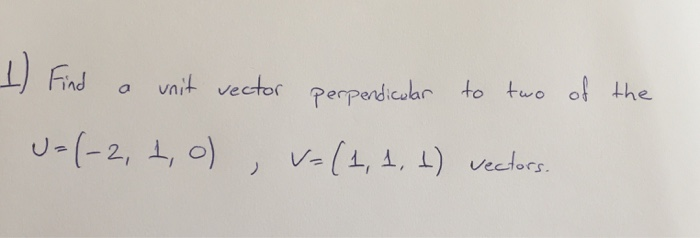 1) Find a unit vector perpendicular to two of the
U=(-2, 1, 0) , V=(1, 1, 1) vectors.